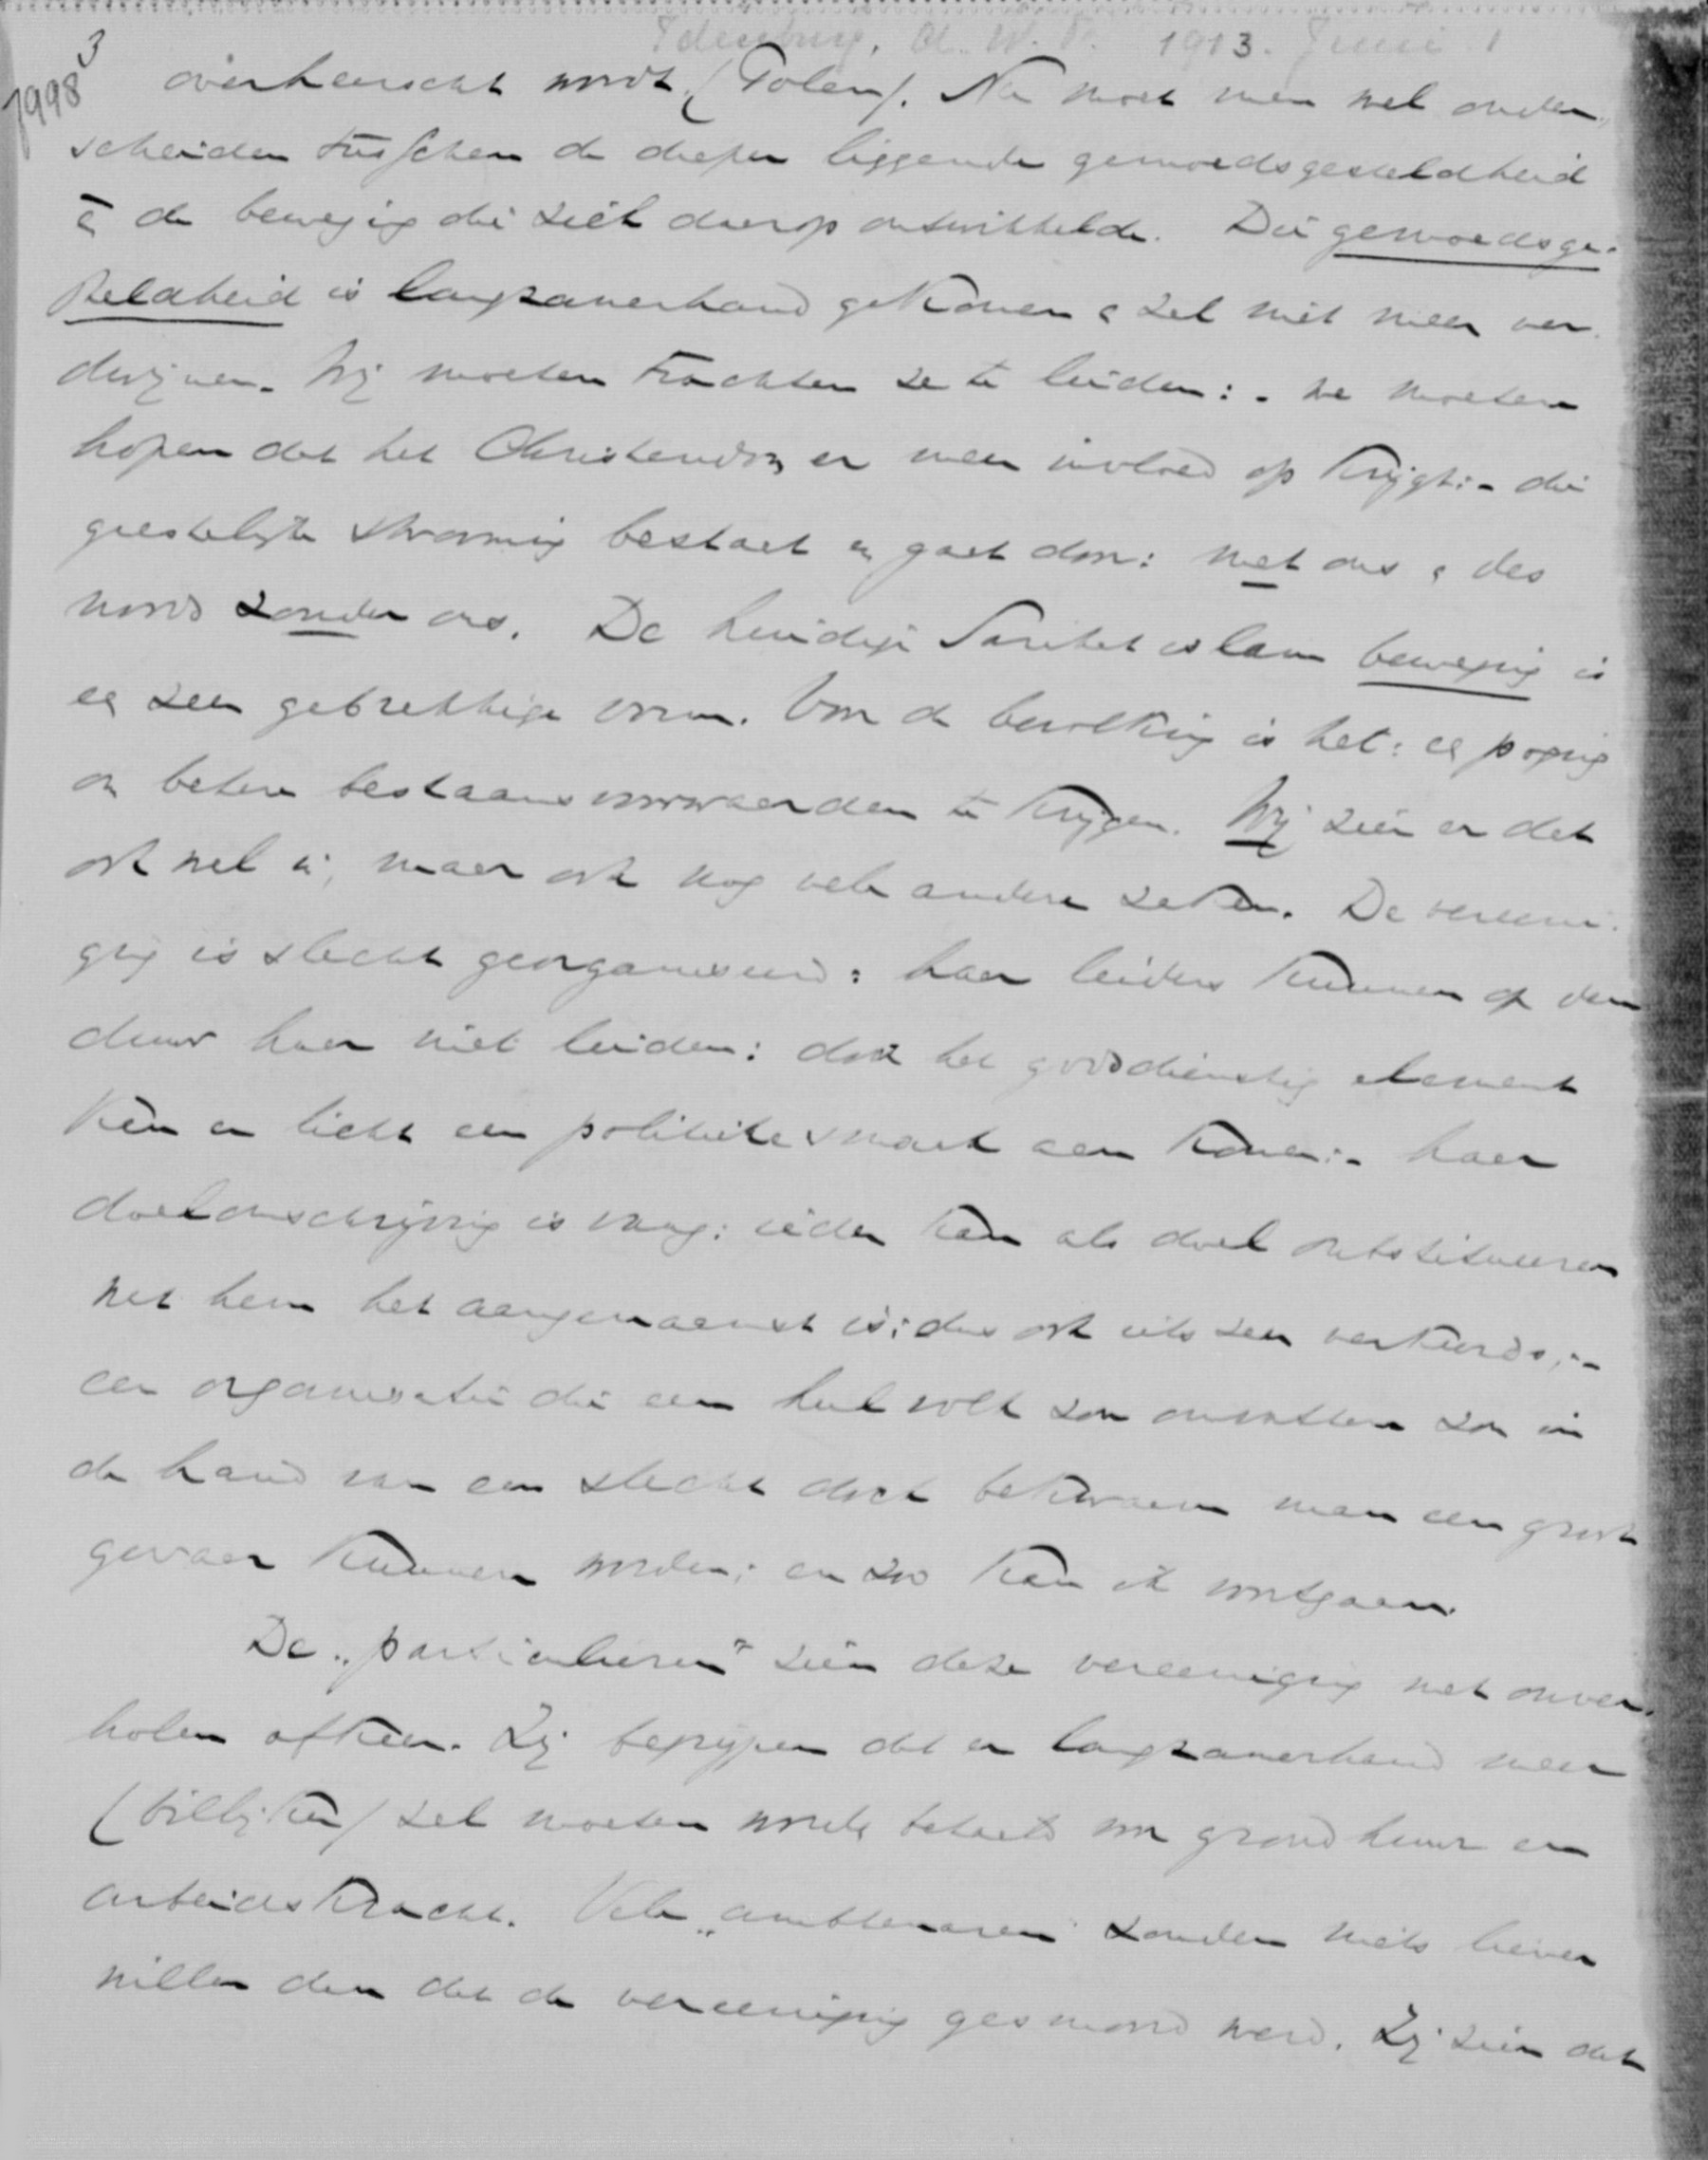 Idenburg, A. W. F. 1913. Juni 1
7998 3
overheerscht wordt (Polen). Nu moet men wel onder-
scheiden tusschen de dieper liggende gemoedsgesteldheid
en de beweging die zich daarop ontwikkelde. Die gemoedsge-
steldheid is langzamerhand gekomen en zal niet meer ver-
dwijnen. Wij moeten trachten ze te leiden: - we moeten
hopen dat het Christendom er meer invloed op krijgt: - die
geestelijke strooming bestaat en gaat door: met ons en des
noods zonder ons. De huidige Sarikat islam beweging is
een zeer gebrekkige vorm. Voor de bevolking is het: een poging
om betere bestaansvoorwaarden te krijgen. Wij zien er dat
ook wel in, maar ook nog vele andere zaken. De vereeni-
ging is slecht georganiseerd: haar leiders kunnen op den
duur haar niet leiden: door het godsdienstig element
kan er licht een politieke smaak aan komen: - haar
doelomschrijving is vaag: ieder kan als doel substitueeren
wat hem het aangenaamst is: dus ook iets zeer verkeerds; -
een organisatie die een heel volk zou omvatten zou in
de hand van een slecht doch bekwaam man een groot
gevaar kunnen worden; en zoo kan ik voortgaan.
De „particulieren" zien deze vereeniging met onver-
holen afkeer. Zij begrijpen dat er langzamerhand meer
(billijker) zal moeten worden betaald voor grondhuur en
arbeidskracht. Vele „ambtenaren" zouden niets liever
willen dan dat de vereeniging gesmoord werd. Zij zien dat